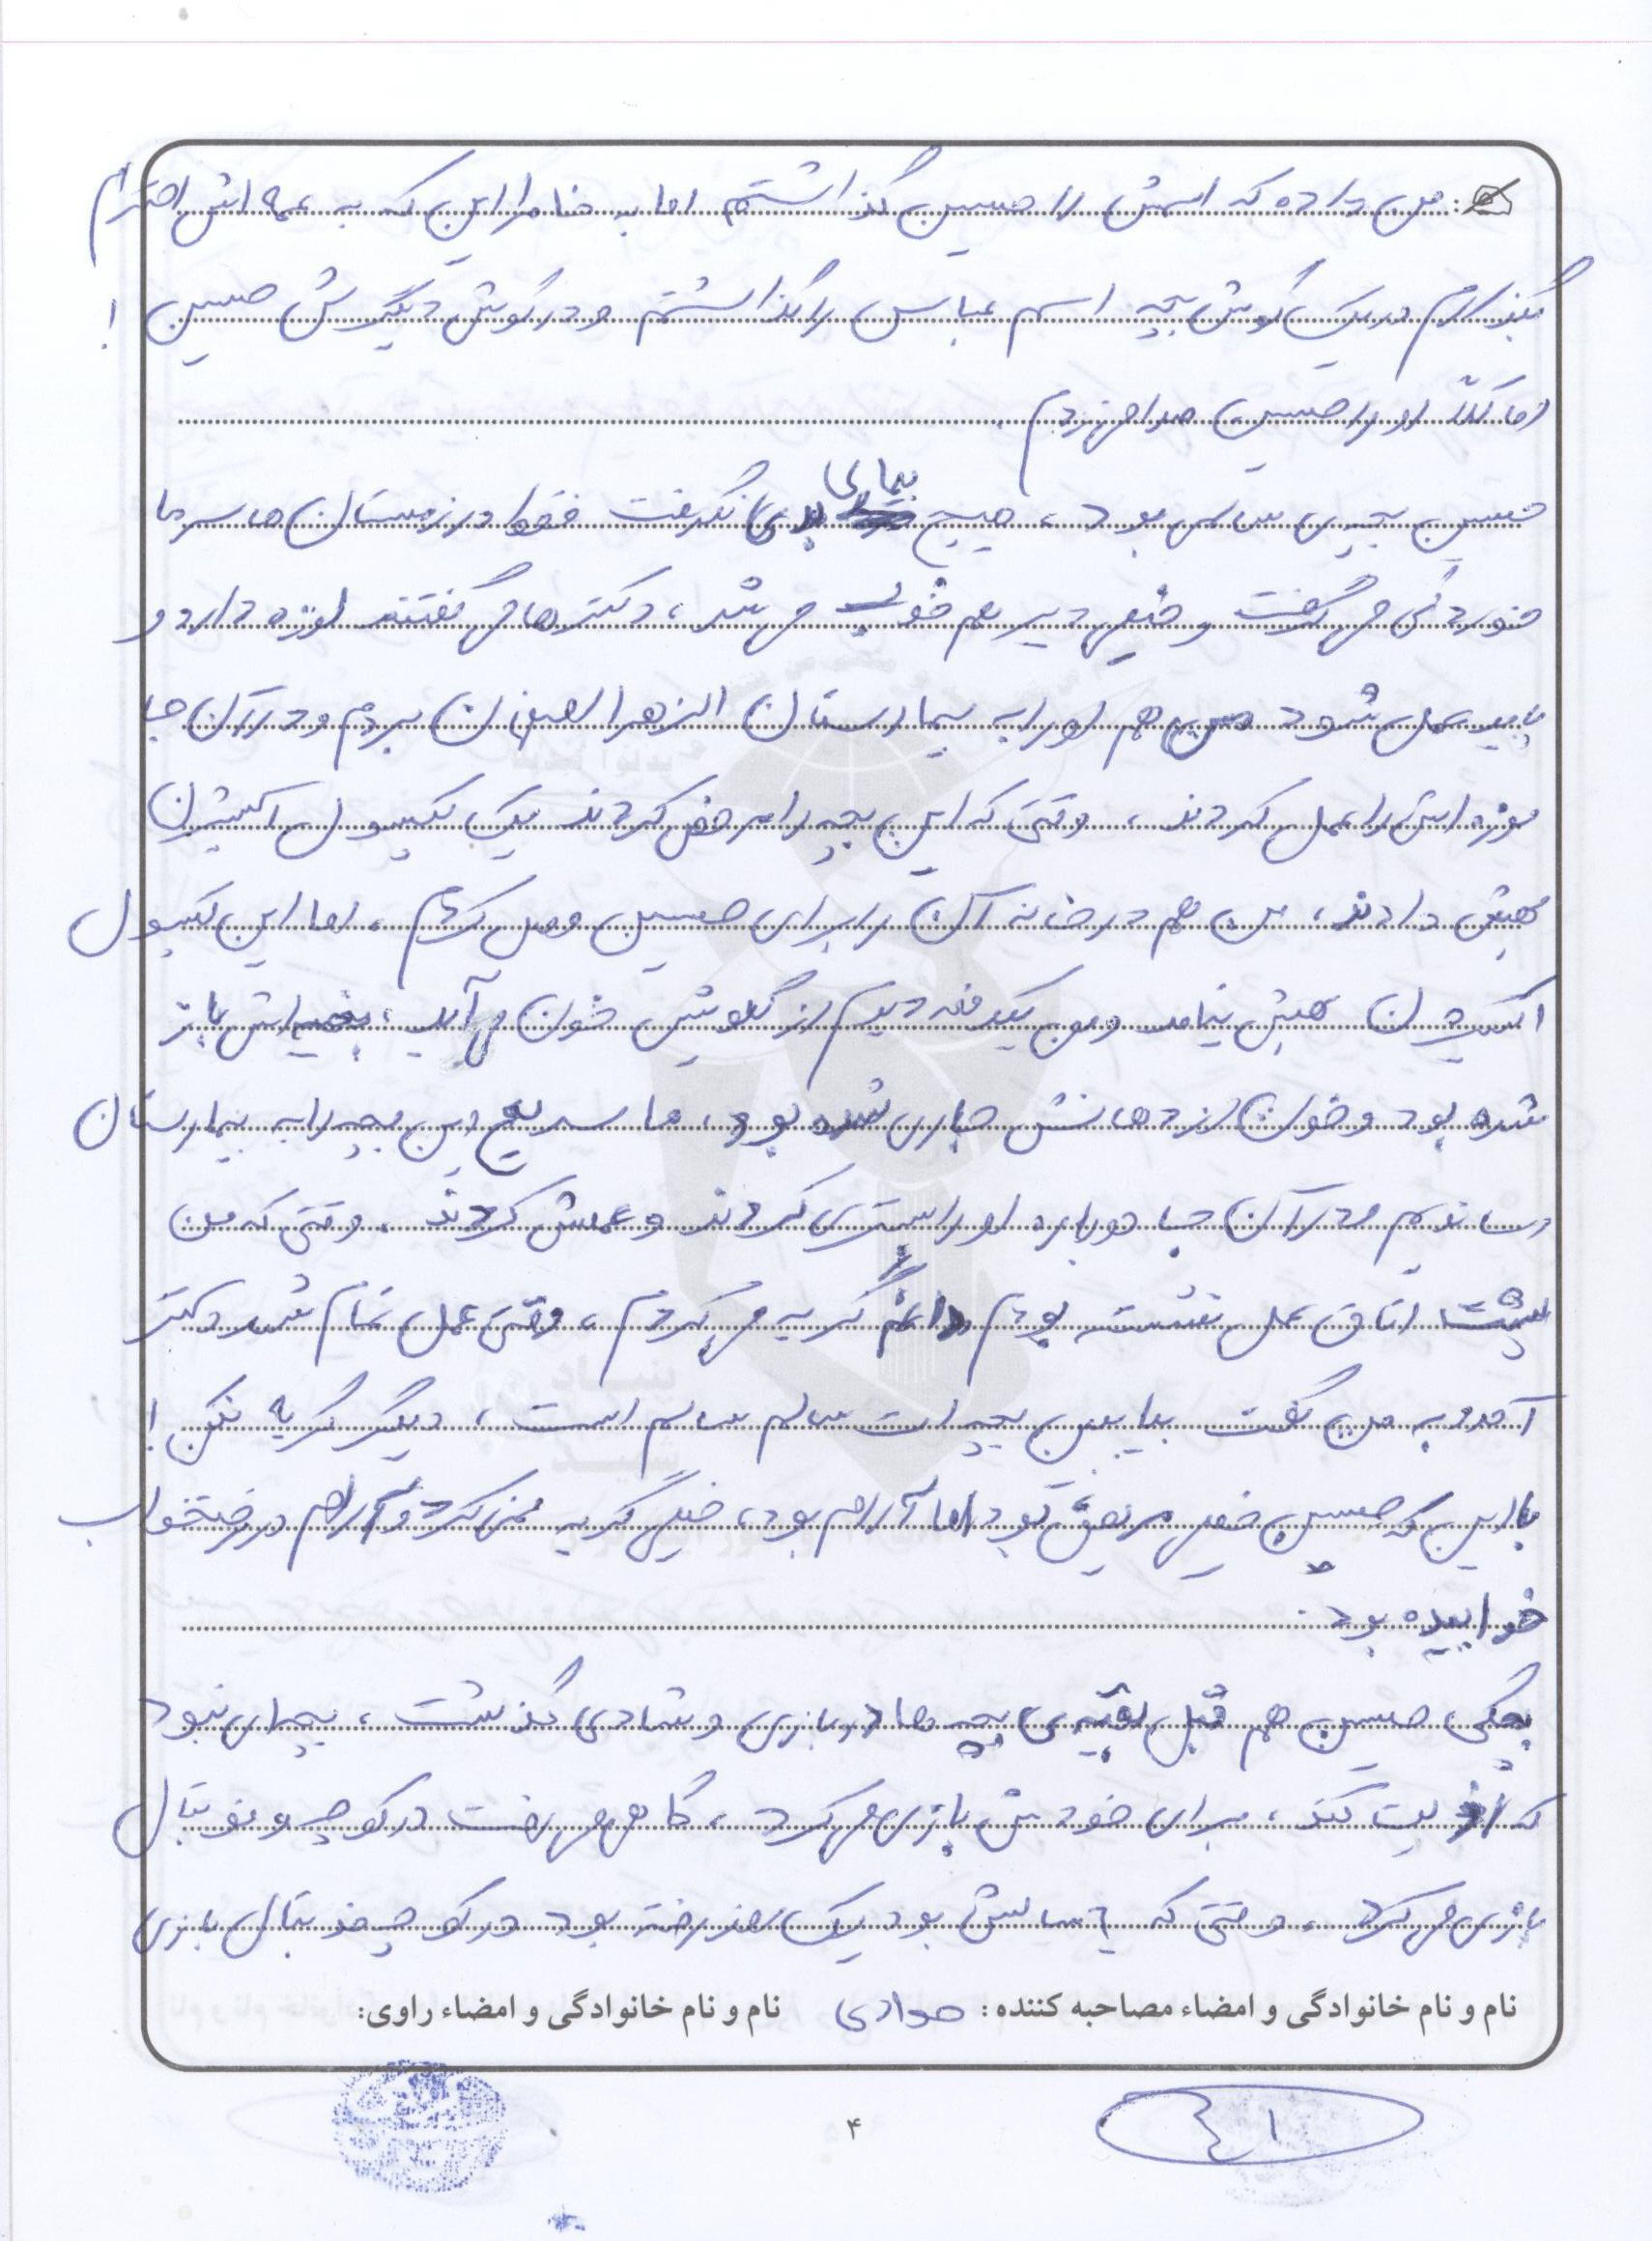 من با ده که اسمش را حسین گذاشتم اما به خاطر این که به عمه اش احترام
بگذارم در یک گوش بچه اسم عباس را گذاشتم و در گوش دیگرش حسین !
اما کلاً او را حسین صدا می‌زدم .
حسین بچه‌ی سالمی بود ، هیچ بیماری بدی نگرفت فقط در زمستان ها سرما
خوردگی می گرفت و خیلی دیر هم خوب می شد ، دکترها می گفتند لوزه دارد و
باید عمل شود من هم او را به بیمارستان الزهرا اصفهان بردم و در آن جا
لوزه اش را عمل کردند ، وقتی که این بچه را مرخص کردند یک کپسول اکسیژن
بهش دادند ، من هم در خانه آن را برای حسین وصل کردم ، اما این کپسول
اکسیژن بهش نیامد و من یکدفعه دیدم از گلویش خون می آید ، بخیه اش باز
شده بود و خون از دهانش جاری شده بود ، ما سریع این بچه را به بیمارستان
رساندیم و در آن جا دوباره او را بستری کردند و عملش کردند ، وقتی که من
پشت اتاق عمل نشسته بودم دائم گریه می کردم ، وقتی عمل تمام شد دکتر
آمد و به من گفت بیا ببین بچه ات سالم سالم است ، دیگر گریه نکن !
با این که حسین خیلی مریض بود اما آرام بود ، خیلی گریه نمی کرد و آرام در رختخواب
خوابیده بود .
بچگی حسین هم مثل بقیه‌ی بچه ها در بازی و شادی گذشت ، بچه‌ای نبود
که اذیت کند ، برای خودش بازی می کرد ، گاهی می رفت در کوچه و فوتبال
بازی می کرد ، وقتی که ۶ سالش بود یک روز رفته بود در کوچه فوتبال بازی
نام و نام خانوادگی و امضاء مصاحبه کننده : جوادی نام و نام خانوادگی و امضاء راوی:
۴